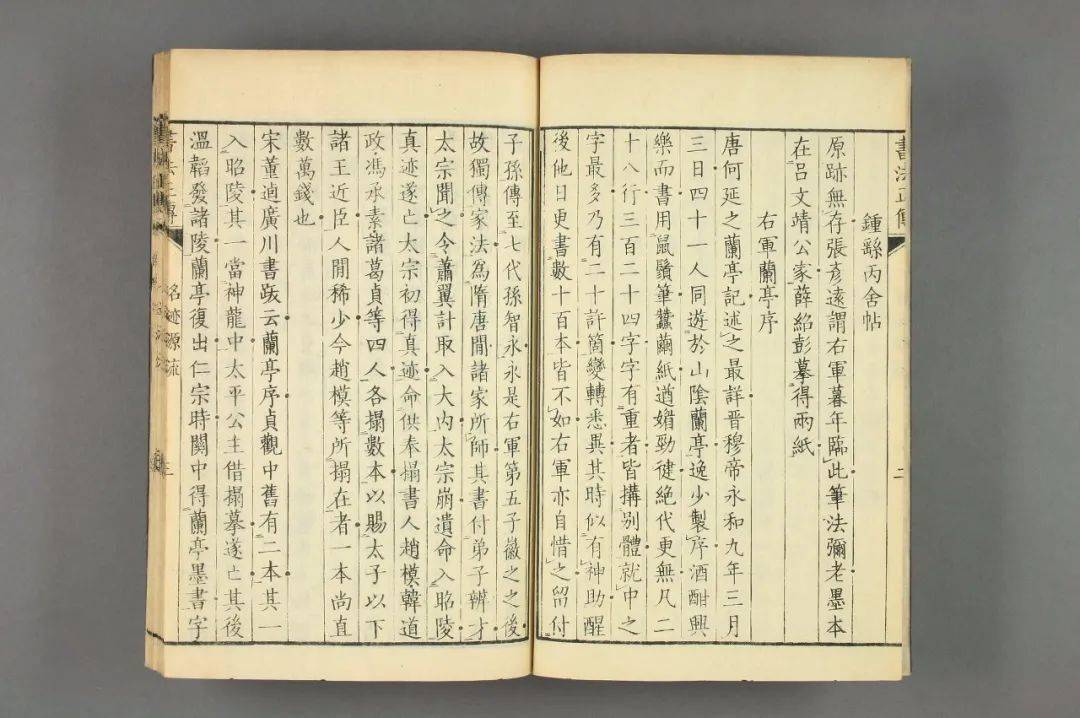 書法正傳
二
鍾繇丙舍帖
原跡無存張彥遠謂右軍暮年臨此筆法彌老墨本
在呂文靖公家薛紹彭摹得兩紙
右軍蘭亭序
唐何延之蘭亭記述之最詳晉穆帝永和九年三月
三日四十一人同遊於山陰蘭亭逸少製序酒酣興
樂而書用鼠鬚筆蠶繭紙遒媚勁健絕代更無凡二
十八行三百二十四字字有重者皆搆別體就中之
字最多乃有二十許箇變轉悉異其時似有神助醒
後他日更書數十百本皆不如右軍亦自惜之留付
子孫傳至七代孫智永永是右軍第五子徽之之後
故獨傳家法爲隋唐閒諸家所師其書付弟子辨才
太宗聞之令蕭翼計取入大内太宗崩遺命入昭陵
真迹遂亡太宗初得真迹命供奉搨書人趙模韓道
政馮承素諸葛貞等四人各搨數本以賜太子以下
諸王近臣人閒稀少今趙模等所搨在者一本尚直
數萬錢也
宋董逌廣川書跋云蘭亭序貞觀中舊有二本其一
入昭陵其一當神龍中太平公主借搨摹遂亡其後
溫韜發諸陵蘭亭復出仁宗時關中得蘭亭墨書字
書法正傳
名迹源流
三